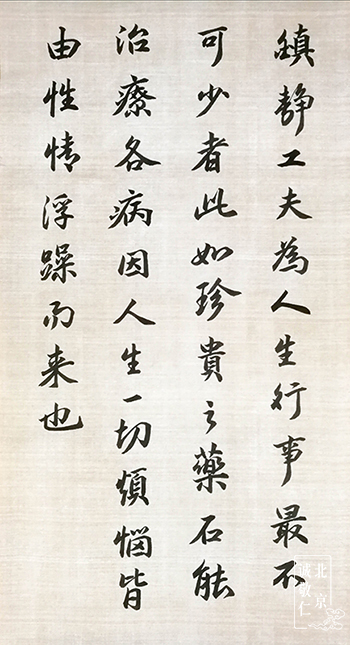 鎮静工夫為人生行事最不
可少者此如珍貴之藥石能
治療各病因人生一切煩惱皆
由性情浮躁而来也
北京
誠敬仁